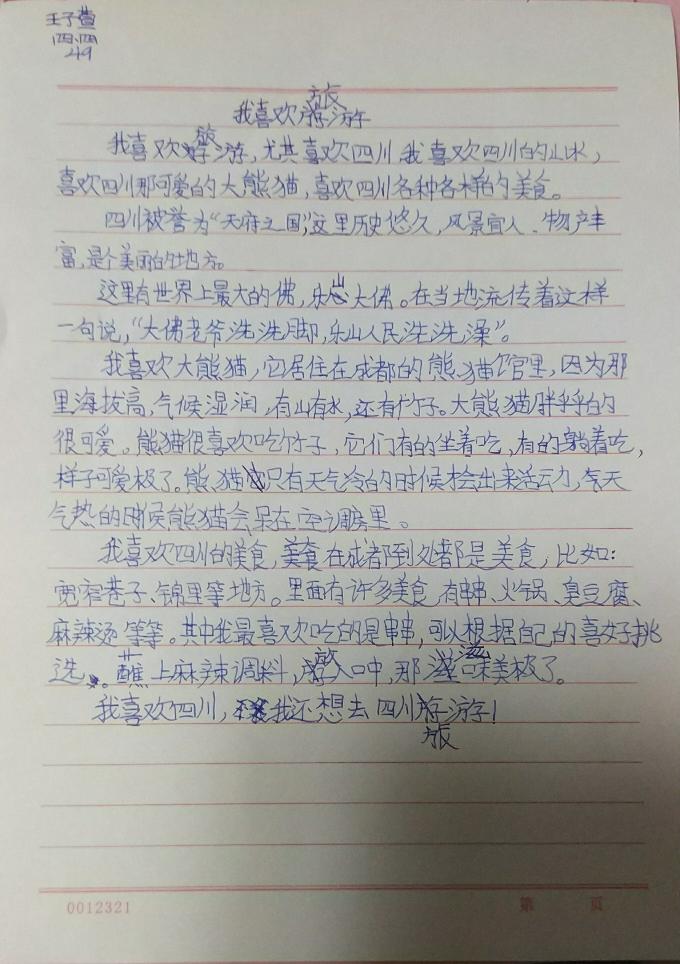 王子萱
四.四
49
我喜欢旅游
我喜欢旅游,尤其喜欢四川.我喜欢四川的山水,
喜欢四川那可爱的大熊猫,喜欢四川各种各样的美食。
四川被誉为“天府之国”,这里历史悠久,风景宜人、物产丰
富,是个美丽的地方。
这里有世界上最大的佛,乐山大佛。在当地流传着这样
一句说,“大佛老爷洗洗脚,乐山人民洗洗澡”。
我喜欢大熊猫,它居住在成都的熊猫馆里,因为那
里海拔高,气候湿润,有山有水,还有竹子。大熊猫胖乎乎的
很可爱。熊猫很喜欢吃竹子,它们有的坐着吃,有的躺着吃,
样子可爱极了。熊猫只有天气冷的时候才会出来活动,夏天
气热的时候熊猫会呆在空调房里。
我喜欢四川的美食,美食在成都到处都是美食,比如:
宽窄巷子、锦里等地方。里面有许多美食,有串串、火锅、臭豆腐、
麻辣烫等等。其中我最喜欢吃的是串串,可以根据自己的喜好挑
选。蘸上麻辣调料,放入口中,那滋味美极了。
我喜欢四川,我还想去四川旅游!
0012321
第 页